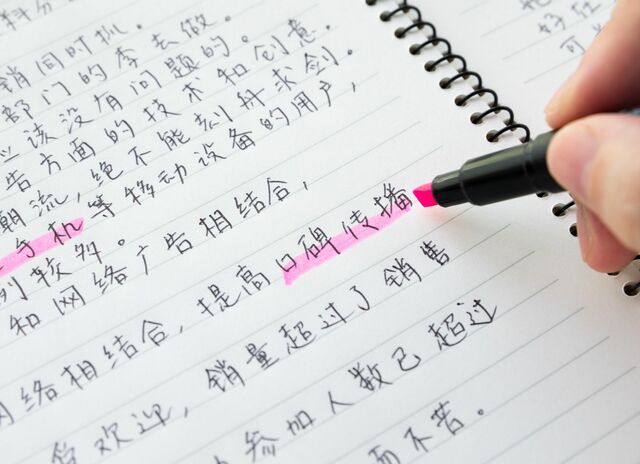 销同时抓.
部门的李去做。
应该没有问题的。
告方面的技术和创意.
潮流,绝不能刻舟求剑.
手机等移动设备的用户,
列软件。
和网络广告相结合,
网络相结合,提高口碑传播
欢迎,销量超过了销售
参加人数已超过
而不苦。
可